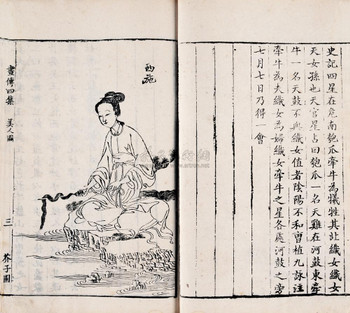 史記四星在危南匏瓜牽牛為犧牲其北織女織女
天女孫也天官星占曰匏瓜一名天雞在河鼓東牽
牛一名天鼓不與織女值者陰陽不和曹植九詠注
牽牛為夫織女為婦織女牽牛之星各處河鼓之旁
七月七日乃得一會
西施
畫傳四集 美人圖 三 芥子園